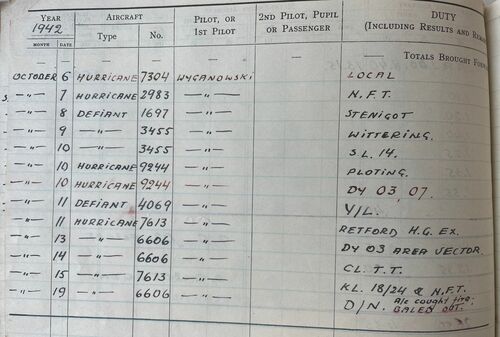 YEAR AIRCRAFT PILOT, OR 2ND PILOT, PUPIL DUTY
1942 1ST PILOT OR PASSENGER (INCLUDING RESULTS AND
MONTH DATE Type No.
— — — — — — TOTALS BROUGHT
OCTOBER 6 HURRICANE 7304 WYGANOWSKI LOCAL
—"— 7 HURRICANE 2983 —"— N.F.T.
—"— 8 DEFIANT 1697 —"— STENIGOT
—"— 9 —"— 3455 —"— WITTERING.
—"— 10 —"— 3455 —"— S.L. 14.
—"— 10 HURRICANE 9244 —"— PLOTING.
—"— 10 HURRICANE 9244 —"— DY 03, 07.
—"— 11 DEFIANT 4069 —"— Y/L.
—"— 11 HURRICANE 7613 —"— RETFORD H.G. EX.
—"— 13 —"— 6606 —"— DY 03 AREA VECTOR.
—"— 14 —"— 6606 —"— CL. T.T.
—"— 15 —"— 7613 —"— KL. 18/24 & N.F.T.
—"— 19 —"— 6606 —"— D/N. A/c caught fire.
BALED OUT.